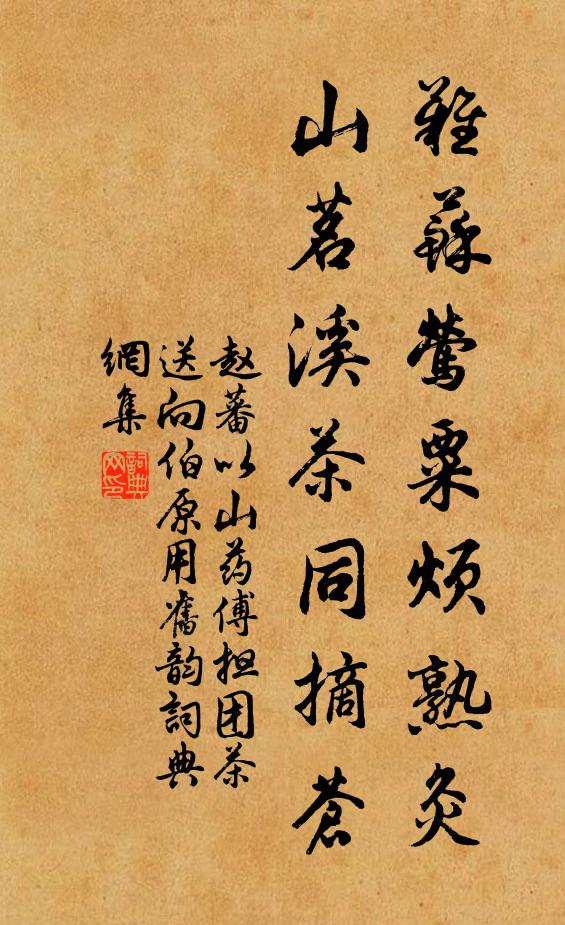 難蘇鶯粟煩熟灸
山茗溪茶同摘蒼
赵蕃以山药傅担团茶
送向伯原用舊韵詞典
網集
詞典
网印